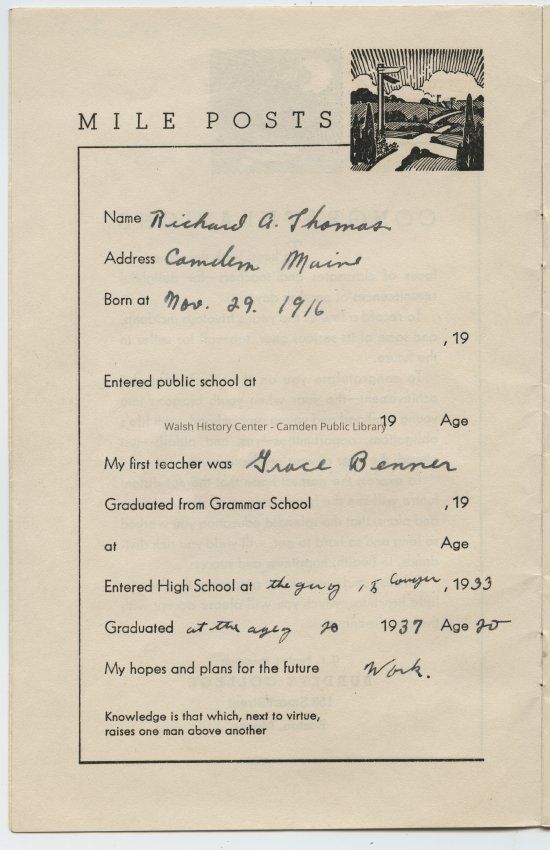 MILE POSTS
Name Richard A. Thomas
Address Camden Maine
Born at Nov. 29. 1916
, 19
Entered public school at
19 Age
Walsh History Center - Camden Public Library
My first teacher was Grace Benner
Graduated from Grammar School , 19
at Age
Entered High School at the 15 , 1933
Graduated at the age of 20 1937 Age 20
My hopes and plans for the future Work.
Knowledge is that which, next to virtue,
raises one man above another